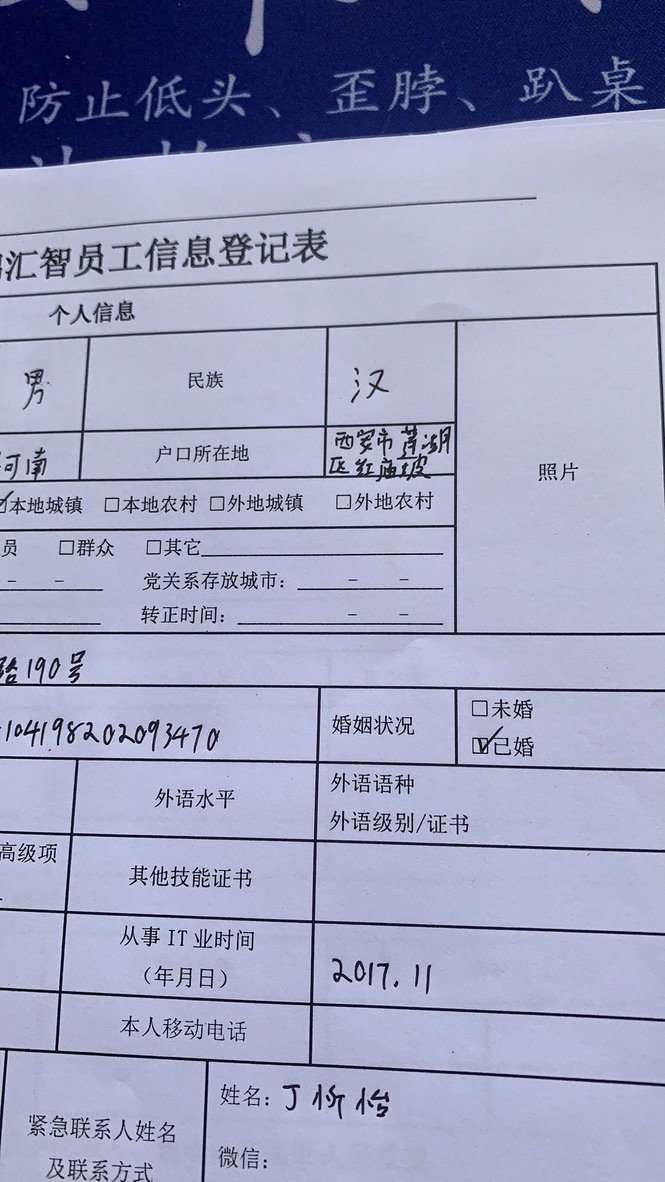 防止低头、歪脖、趴桌
汇智员工信息登记表
个人信息
男 民族 汉 照片
河南 户口所在地 西安市莲湖区红庙坡
☑本地城镇 □本地农村 □外地城镇 □外地农村
员 □群众 □其它
党关系存放城市：
转正时间：
路190号
104198202093470 婚姻状况 □未婚
☑已婚
外语水平 外语语种
外语级别/证书
高级项 其他技能证书
从事IT业时间
（年月日） 2017.11
本人移动电话
紧急联系人姓名
及联系方式
姓名：丁
微信：